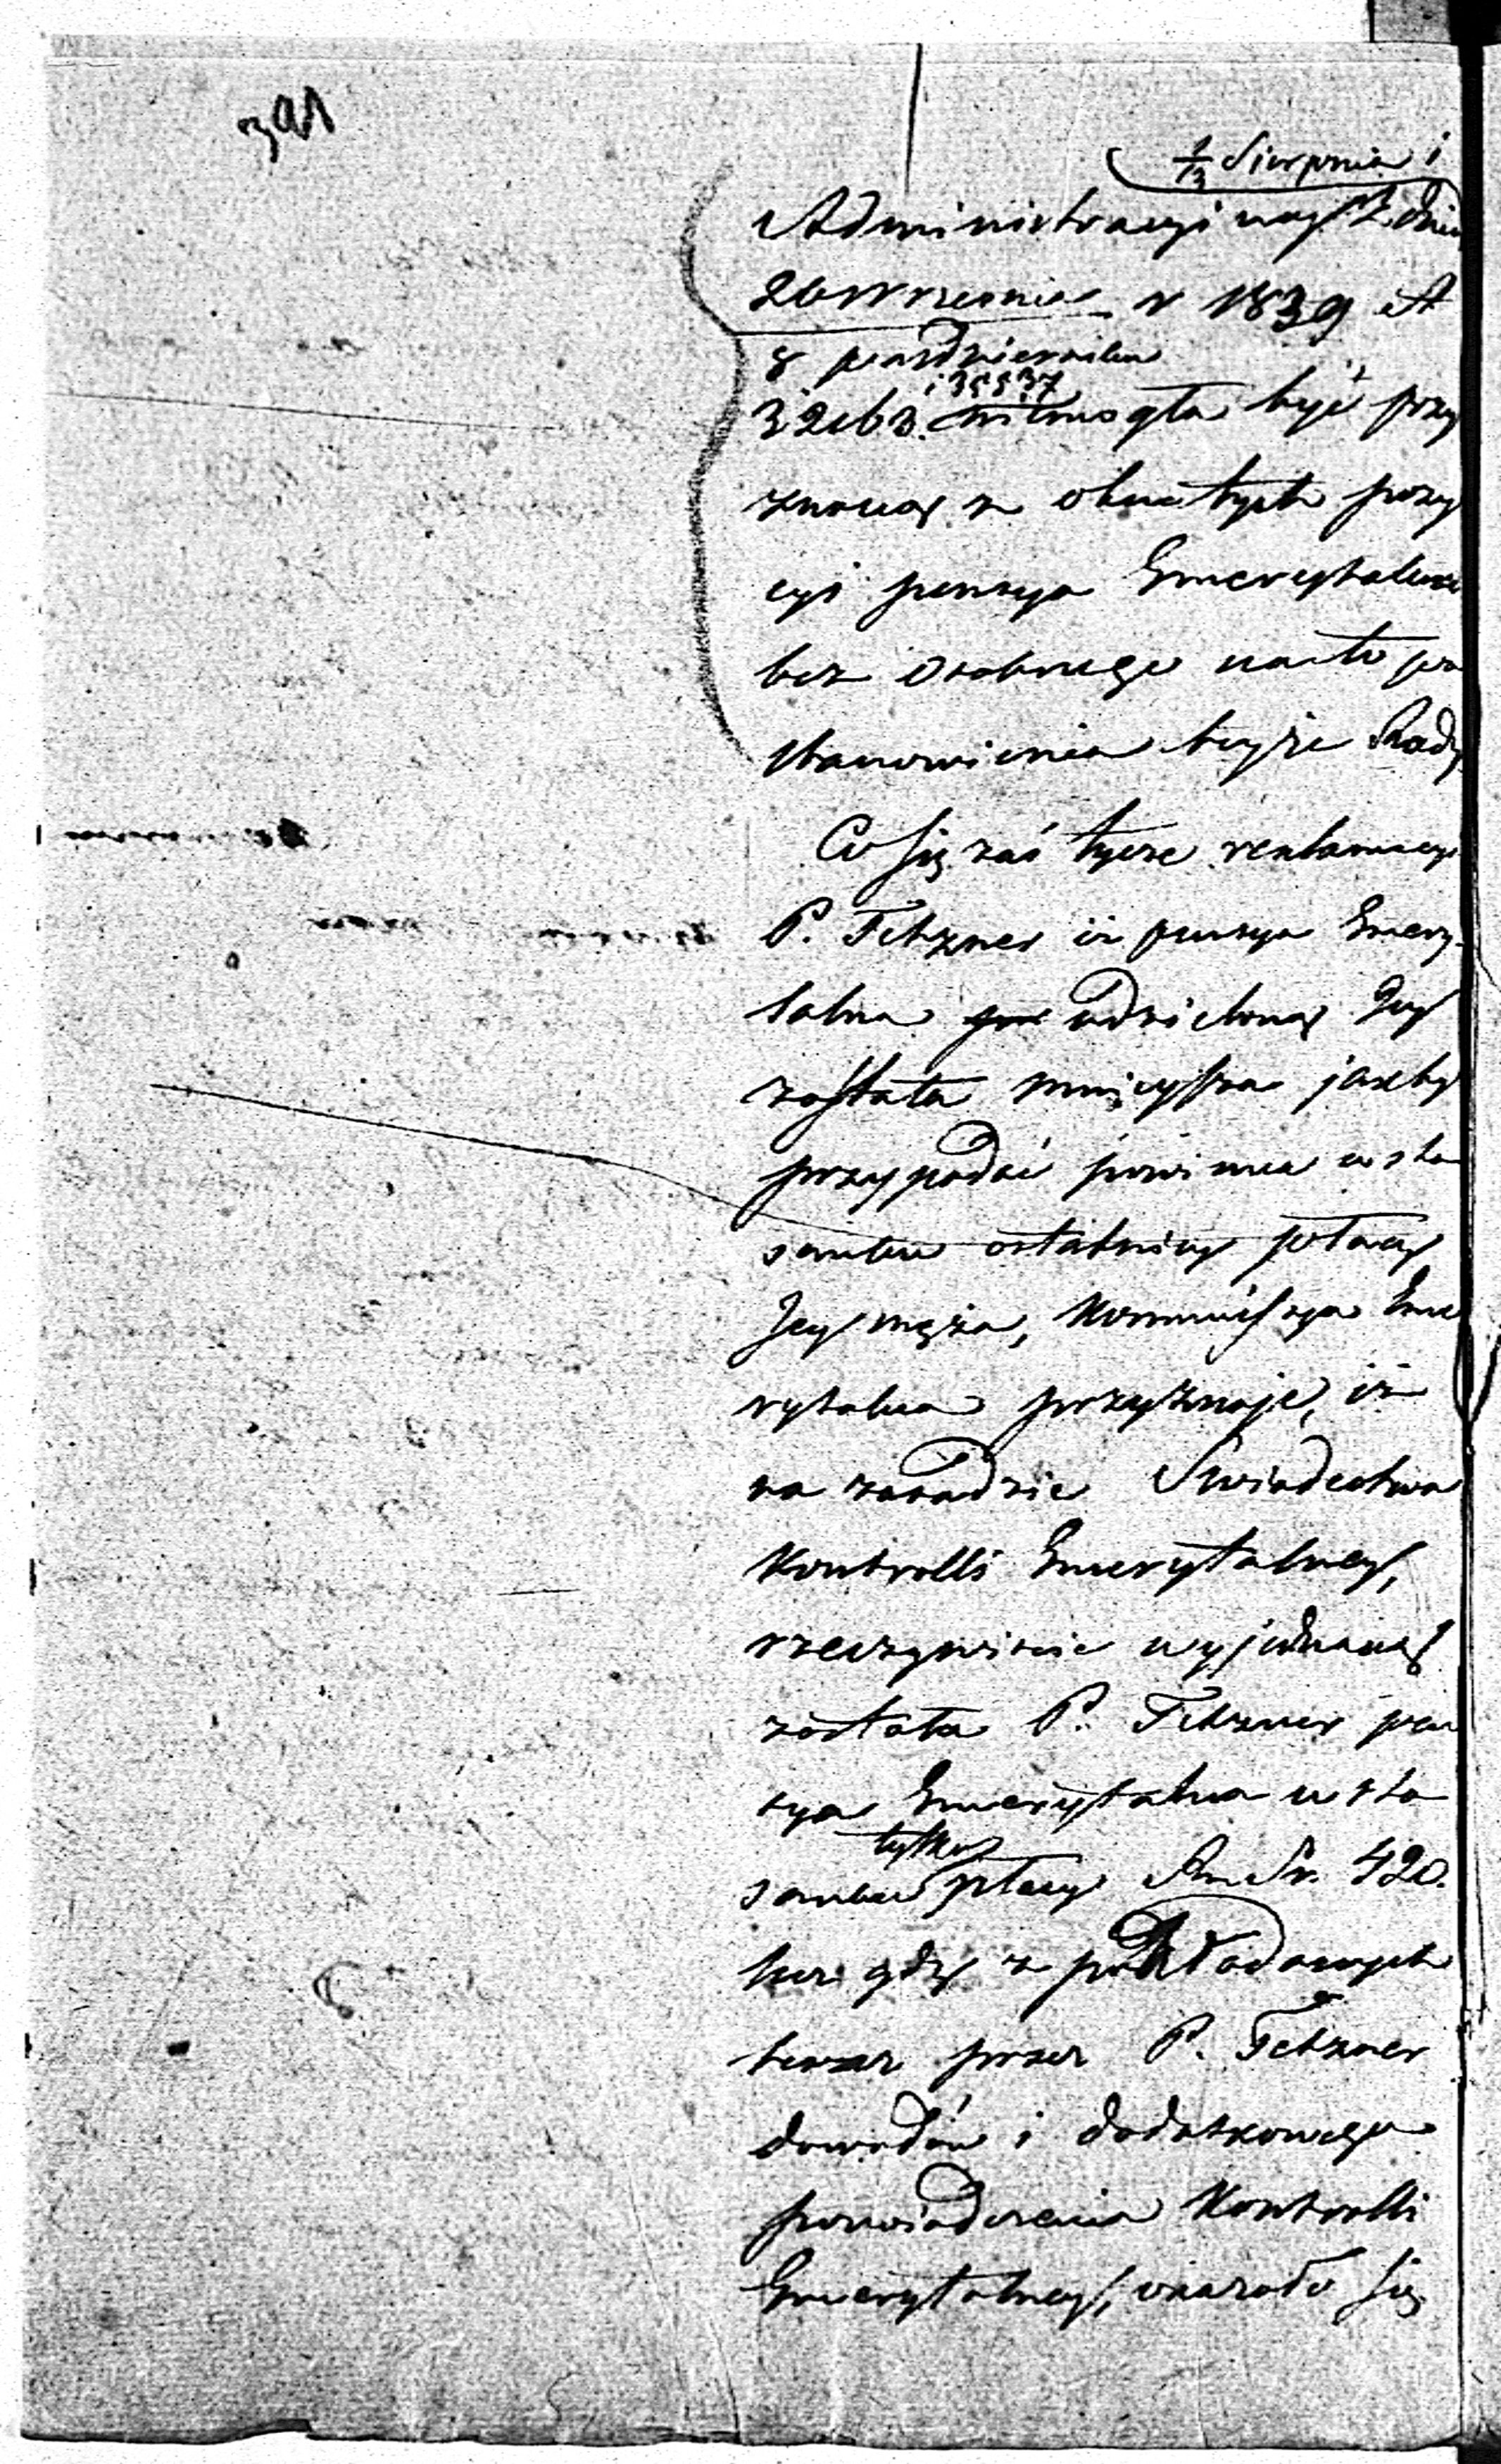 391
1/13 Sierpnia i
Administracyjney z dnia
26 Września r 1839 N
8 października
i 35537
32263. niemogła być przy
znaną z obu tych pozy
cyi pensya Emerytalna
bez osobnego na to po
stanowienia teyże Rady
Co się zaś tycze reklamacyi
P. Tetzner iż pensya Emery
talna udzieloną Jey
została mnieyszą jakby
przypadać powinna w sto
sunku ostatniey płacy
Jey męża, Kommissya Eme
rytalna przyznaje, iż
na zasadzie Świadectwa
Kontrolli Emerytalney,
rzeczywiście wyjednaną
została P. Tetzner pen
sya Emerytalna w sto
tylko
sunku płacy Rub Sr. 420.
lecz gdy z poskładanych
teraz przez P. Tetzner
dowodów i dodatkowego
poświadczenia Kontrolli
Emerytalney, okazało się